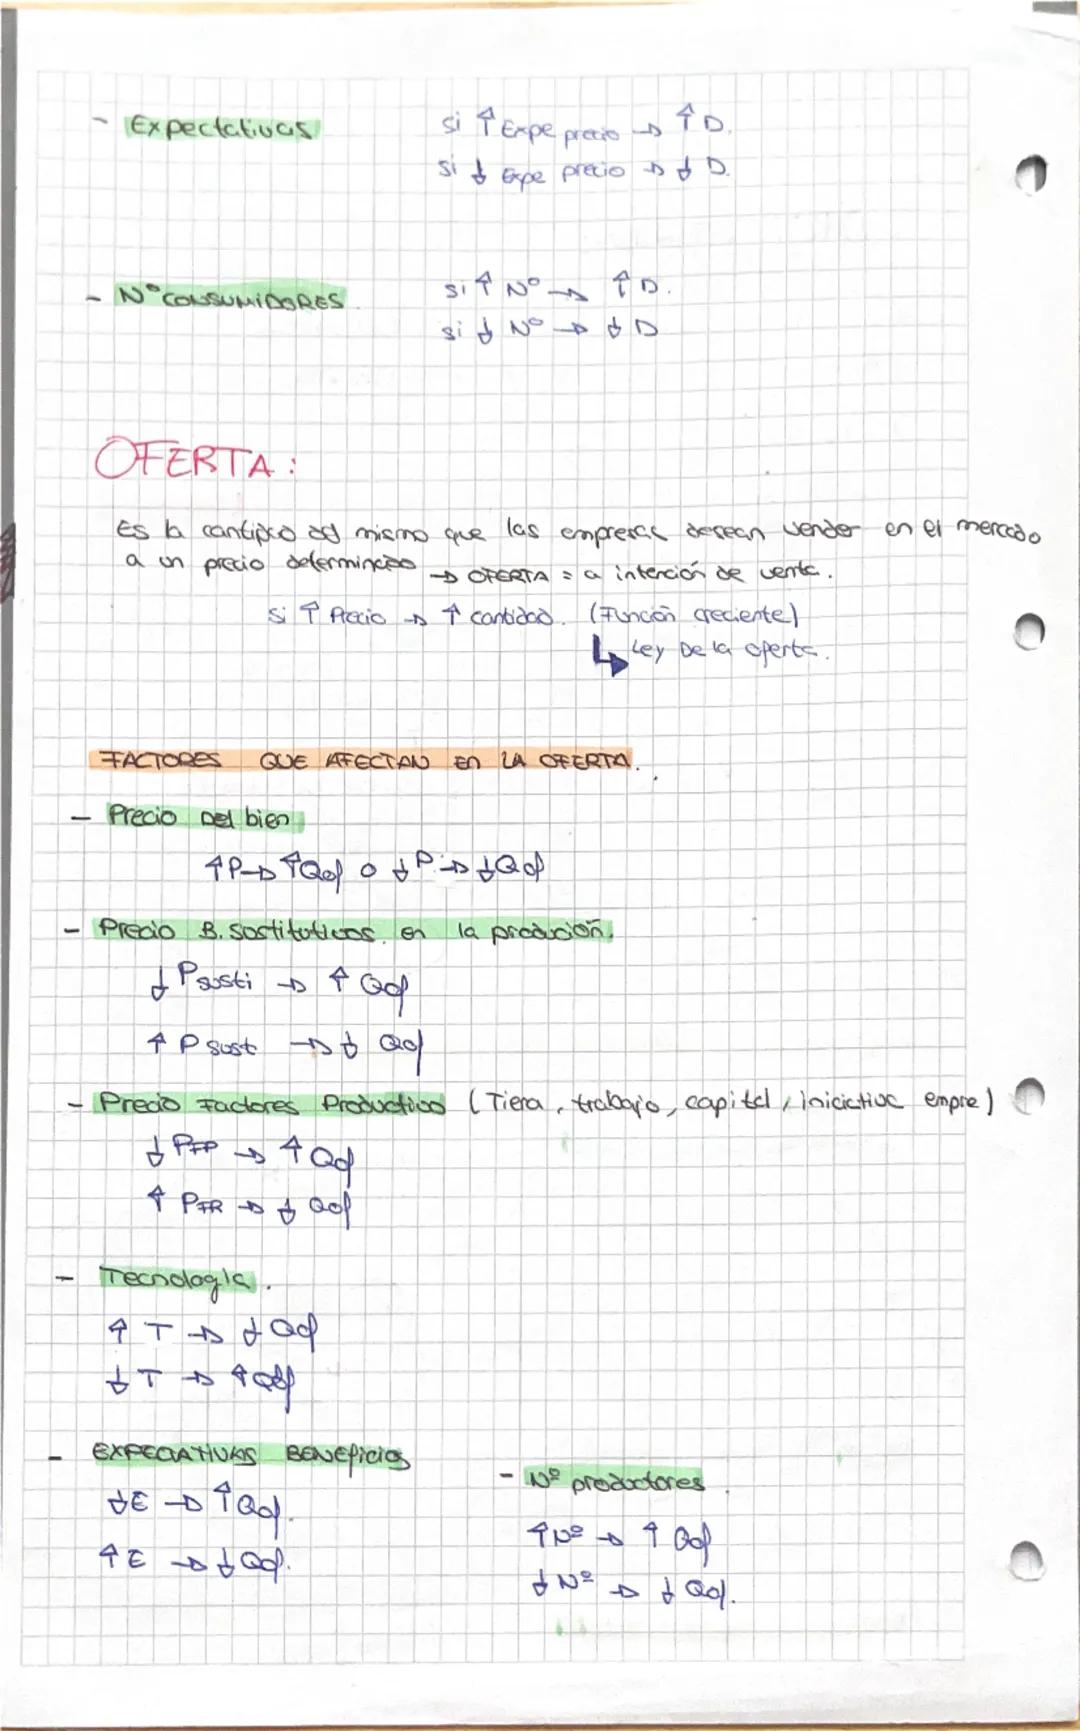 - Expectativas
si ↑ Expe precio → ↑ D.
si ↓ Expe precio → ↓ D.
- Nº CONSUMIDORES.
si ↑ Nº → ↑ D.
si ↓ Nº → ↓ D
OFERTA:
Es la cantidad del mismo que las empresas desean vender en el mercado
a un precio determinado → OFERTA = a intención de venta.
si ↑ Precio → ↑ cantidad. (Función creciente)
↳ Ley De la oferta.
FACTORES QUE AFECTAN En LA OFERTA.
- Precio Del bien
↑P → ↑Qof o ↓P → ↓Qof
- Precio B. sostitutivos. en la produción.
↓ Psusti → ↑ Qof
↑ P sust → ↓ Qof
- Precio Factores Productivo (Tiera, trabajo, capital, iniciativa empre)
↓ PFP → ↑ Qof
↑ PFR → ↓ Qof
- Tecnología.
↑ T → ↓ Qof
↓ T → ↑ Qof
- EXPECIATIVAS BENEficios
↓E → ↑Qof.
↑E → ↓Qof.
- Nº productores.
↑Nº → ↑ Qof
↓Nº → ↓ Qof.